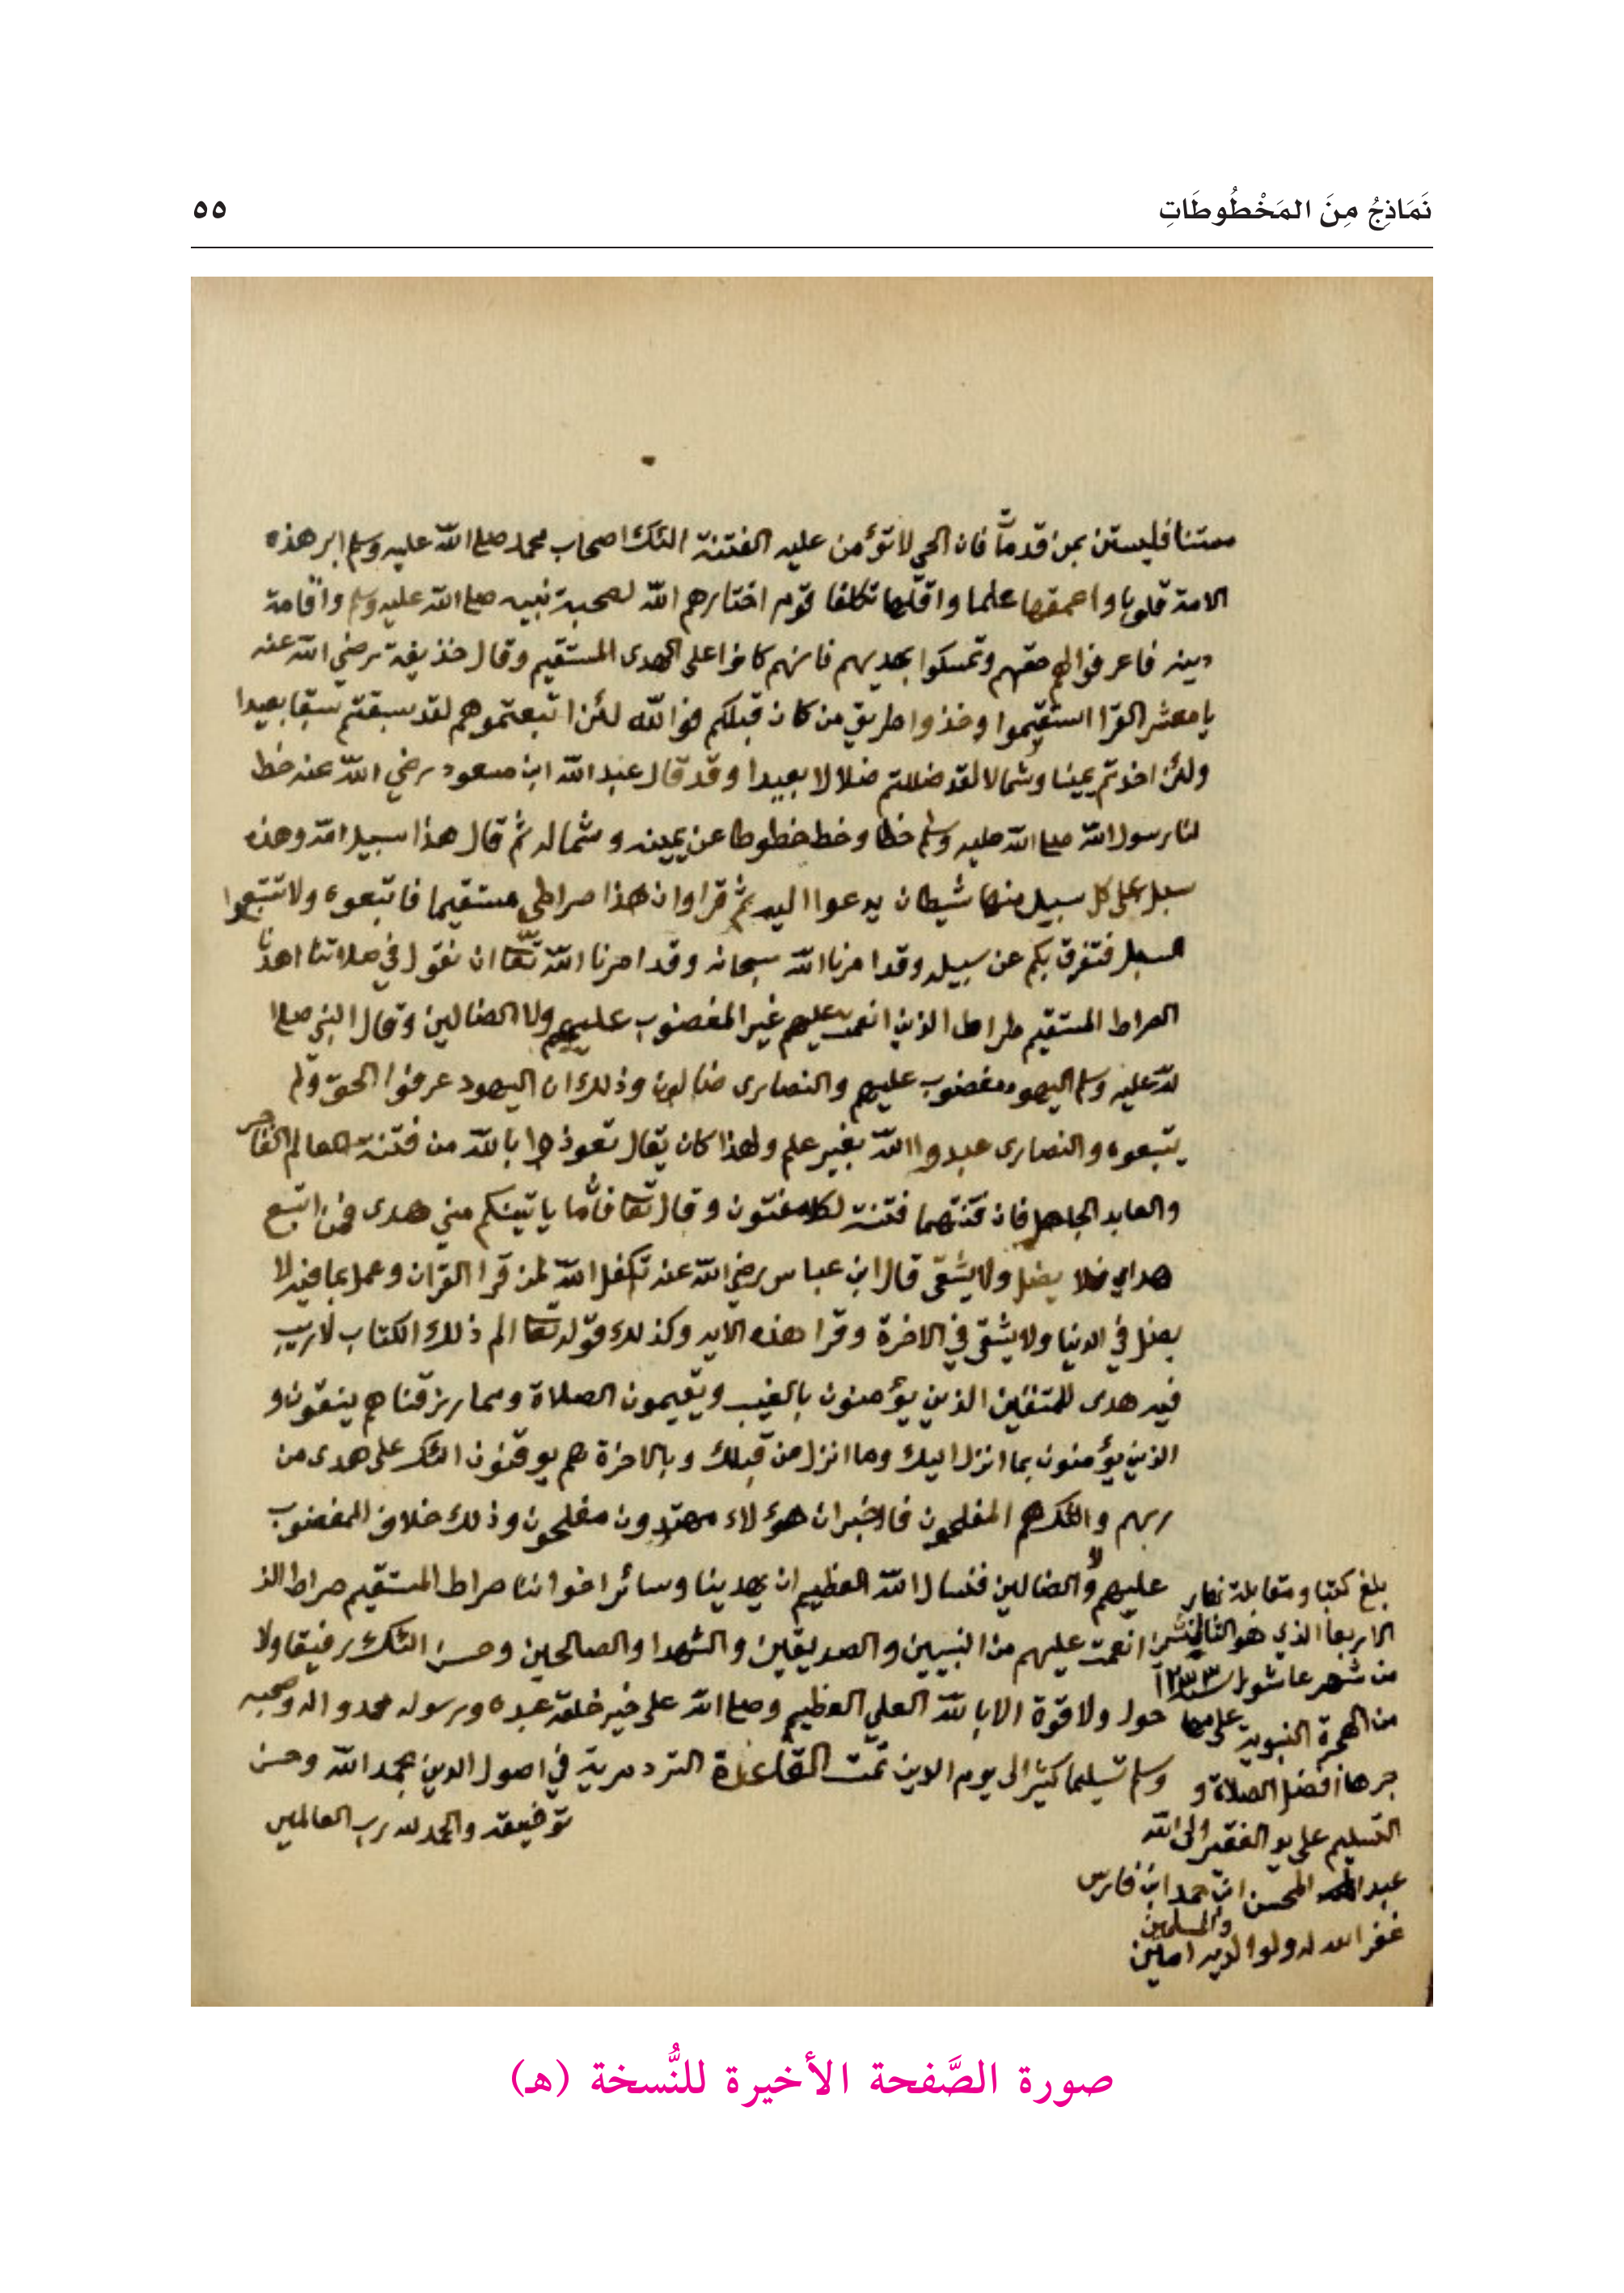 نَمَاذِجُ مِنَ المَخْطُوطَاتِ
٥٥
مستنا فليستن بمن قد مات فان الحي لا تؤمن عليه الفتنة اولئك اصحاب محمد صلى الله عليه وسلم ابر هذه
الامة قلوبا واعمقها علما واقلها تكلفا قوم اختارهم الله لصحبة نبيه صلى الله عليه وسلم واقامة
دينه فاعرفوا لهم حقهم وتمسكوا بهديهم فانهم كانوا على الهدى المستقيم وقال حذيفة رضي الله عنه
يا معشر القرا استقيموا وخذوا طريق من كان قبلكم فوالله لئن اتبعتموهم لقد سبقتم سبقا بعيدا
ولئن اخذتم يمينا وشمالا لقد ضللتم ضلالا بعيدا وقد قال عبد الله ابن مسعود رضي الله عنه خط
لنا رسول الله صلى الله عليه وسلم خطا وخط خطوطا عن يمينه وشماله ثم قال هذا سبيل الله وهذه
سبل على كل سبيل منها شيطان يدعوا اليه ثم قرا وان هذا صراطي مستقيما فاتبعوه ولا تتبعوا
السبل فتفرق بكم عن سبيله وقد امرنا الله سبحانه وقد امرنا الله تعا ان نقول في صلاتنا اهدنا
الصراط المستقيم صراط الذين انعمت عليهم غير المغضوب عليهم ولا الضالين وقال النبي صلى ا
لله عليه وسلم اليهود مغضوب عليهم والنصارى ضالون وذلك ان اليهود عرفوا الحق ولم
يتبعوه والنصارى عبدوا الله بغير علم ولهذا كان يقال تعوذوا بالله من فتنة العالم الفاجر
والعابد الجاهل فان فتنتهما فتنة لكل مفتون وقال تعا فاما ياتينكم مني هدى فمن اتبع
هداي فلا يضل ولا يشقى قال ابن عباس رضي الله عنه تكفل الله لمن قرا القران وعمل بما فيه لا
يضل في الدنيا ولا يشقى في الاخرة وقرا هذه الايه وكذلك قوله تعا الم ذلك الكتاب لا ريب
فيه هدى للمتقين الذين يؤمنون بالغيب ويقيمون الصلاة ومما رزقناهم ينفقون و
الذين يؤمنون بما انزل اليك وما انزل من قبلك وبالاخرة هم يوقنون اولئك على هدى من
ربهم واولئك هم المفلحون فاخبر ان هؤلاء مهتدون مفلحون وذلك خلاف المغضوب
عليهم ولا الضالين فنسال الله العظيم ان يهدينا وسائر اخواننا صراط المستقيم صراط الذ
ين انعمت عليهم من النبيين والصديقين والشهدا والصالحين وحسن اولئك رفيقا ولا
حول ولا قوة الا بالله العلي العظيم وصلى الله على خير خلقه عبده ورسوله محمد واله وصحبه
وسلم تسليما كثيرا الى يوم الدين تمت القاعدة التردمرية في اصول الدين بحمد الله وحسن
توفيقه والحمد لله رب العالمين
بلغ كتبا ومقابلة نهار
الاربعا الذي هو
من شهر عاشورا سنة
من الهجرة النبوية على مها
جرها افضل الصلاة و
التسليم على يد الفقير الى الله
عبد المحسن ابن حمد ابن فارس
غفر الله له ولوالديه والمسلمين امين
صورة الصَّفحة الأخيرة للنُّسخة (هـ)